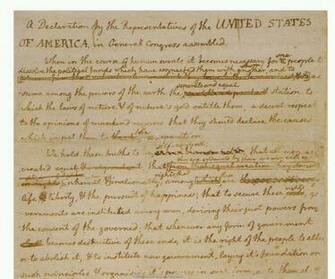 A Declaration by the Representatives of the UNITED STATES
OF AMERICA, in General Congress assembled.
When in the course of human events it becomes necessary for one people to
dissolve the political bands which have connected them with another, and to
assume among the powers of the earth the station to
which the laws of nature & of nature's god entitle them, a decent respect
to the opinions of mankind requires that they should declare the causes
which impel them to the separation.
We hold these truths to be self-evident; that all men are
created equal
inherent & inalienable, among are
life & liberty, & the pursuit of happiness; that to secure these rights, go
vernments are instituted among men, deriving their just powers from
the consent of the governed; that whenever any form of government
becomes destructive of these ends, it is the right of the people to alter
or to abolish it, & to institute new government, laying it's foundation on
such principles & organising it's powers in such form, as to them